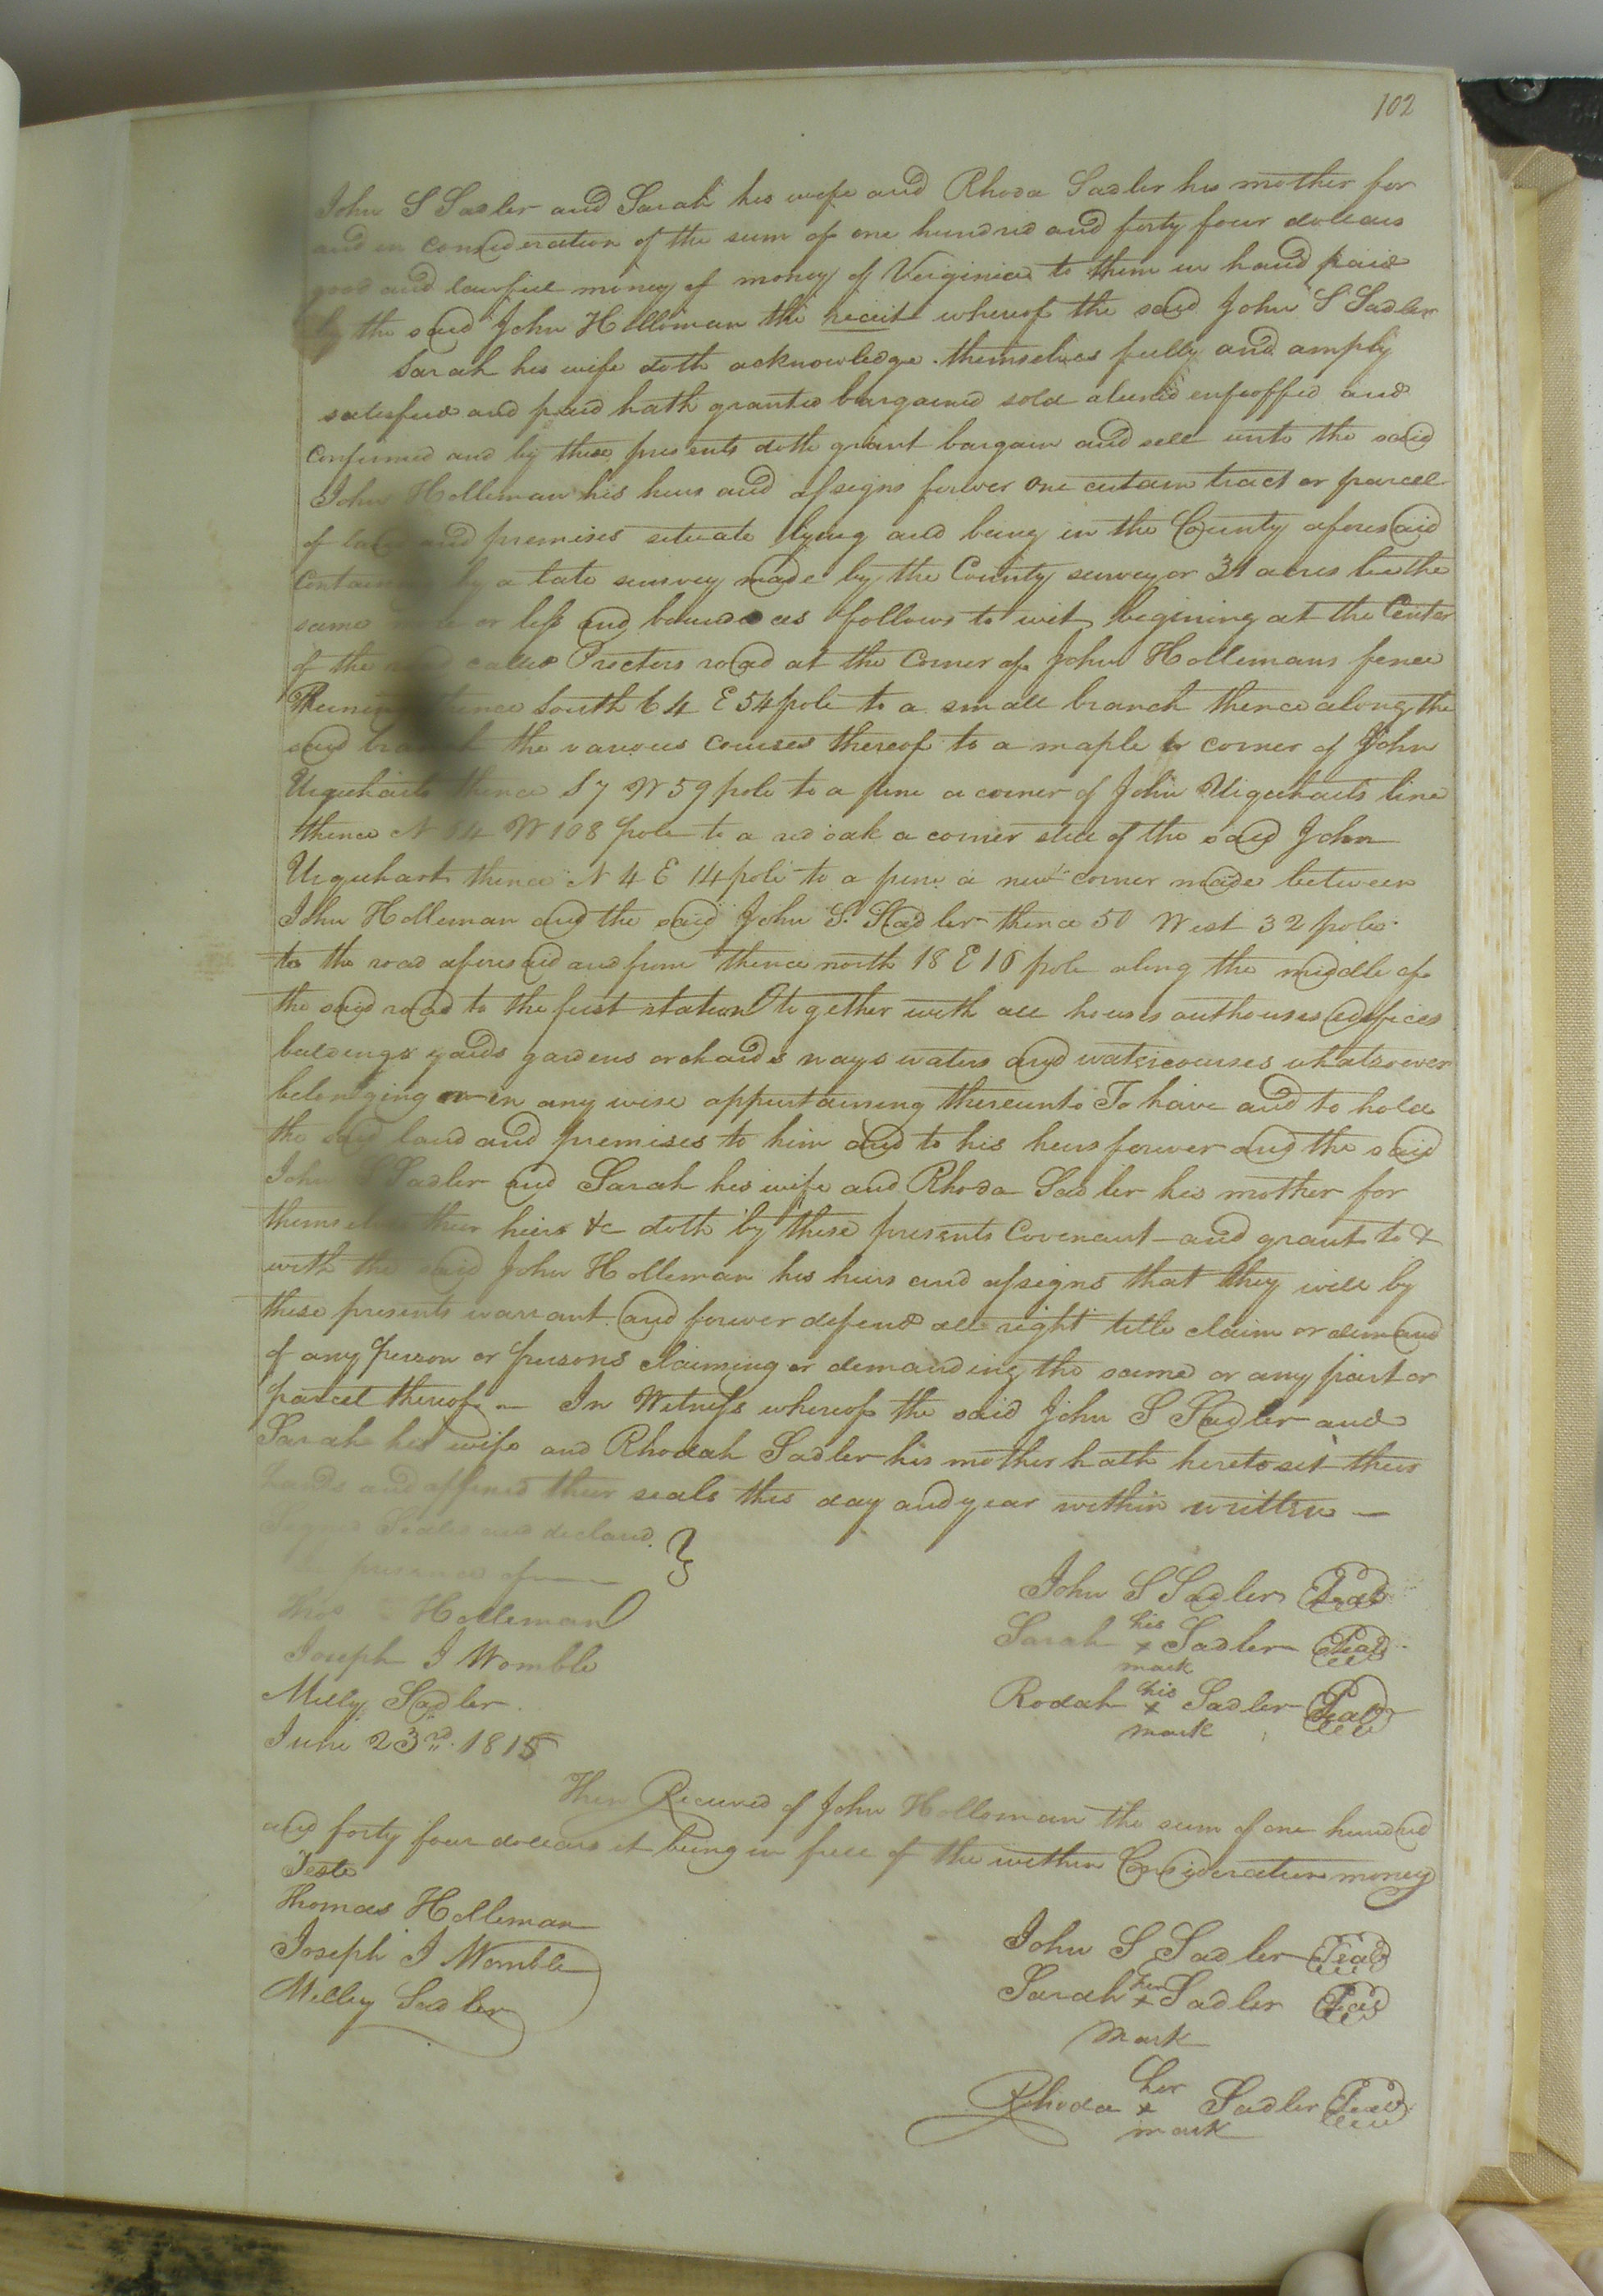 102
John S Sadler and Sarah his wife and Rhoda Sadler his mother for
and in consideration of the sum of one hundrid and forty four dollars
good and lawfull miney of money of Virginia to them in hand paid
by the said John Holloman the receit whereof the said John S Sadler
Sarah his wife doth acknowledge themselves fully and amply
satisfied and paid hath granted bargained sold aliened enfeoffed and
Confirmed and by these presents doth grant bargain and sell unto the said
John Holleman his heirs and assigns forever One certain tract or parcell
of land and premises situate lying and being in the County aforesaid
Containing by a late survey made by the County surveyor 31 acres be the
same more or less and bounded as follows to wit begining at the Center
of the road called Procters road at the Corner of John Hollemans fence
Runing thence South 64 E 54 pole to a small branch thence along the
said branch the various courses thereof to a maple corner of John
Urquharts thence S 7 W 59 pole to a pine a corner of John Urquharts line
thence N 54 W 108 pole to a red oak a corner still of the said John
Urquhart thence N 4 E 14 pole to a pine a new corner made between
John Holleman and the said John S. Sadler thence 50 West 32 poles
to the road aforesaid and from thence north 18 E 16 pole along the middle of
the said road to the first station together with all houses outhouses edifices
buldings yards gardens orchards ways waters and watercourses whatsoever
belonging or in any wise appurtaining thereunto To have and to hold
the said land and premises to him and to his heirs forever and the said
John S Sadler and Sarah his wife and Rhoda Sadler his mother for
themselves their heirs &c doth by these presents Covenant and grant to &
with the said John Holleman his heirs and assigns that they will by
these presents warrant and forever defend all right title claim or demand
of any person or persons claiming or demanding the same or any part or
parcel thereof — In Witness whereof the said John S Sadler and
Sarah his wife and Rhodah Sadler his mother hath hereto set their
hands and affixed their seals this day and year within written —
Signed Sealed and declared
presence of
Thos Holleman
Joseph J Womble
Milly Sadler
June 23rd 1815
John S Sadler Seal
Sarah his x mark Sadler Seal
Rodah his x mark Sadler Seal
Then Received of John Holloman the sum of one hundred
and forty four dollars it being in full of the within Consideration money
Teste
Thomas Holleman
Joseph J Womble
Milley Sadler
John S Sadler Seal
Sarah her x mark Sadler Seal
Rhoda her x mark Sadler Seal